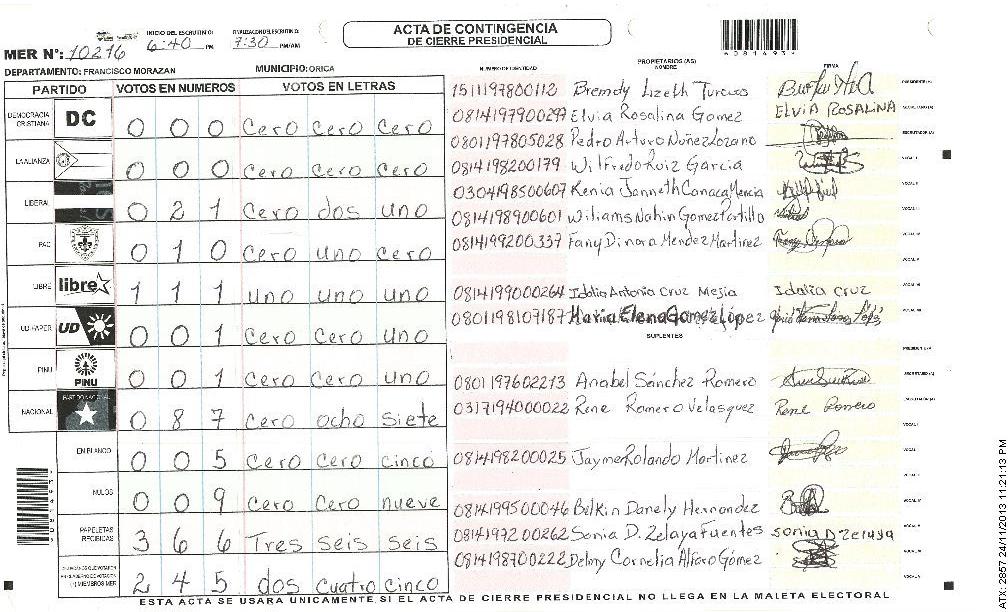 ACTA DE CONTINGENCIA
DE CIERRE PRESIDENCIAL
INICIO DEL ESCRUTINIO:
6:40 PM
FINALIZACION DEL ESCRUTINIO:
7:30 PM/AM
MER Nº: 10216
DEPARTAMENTO: FRANCISCO MORAZAN
MUNICIPIO: ORICA
PARTIDO VOTOS EN NUMEROS VOTOS EN LETRAS
DEMOCRACIA CRISTIANA DC 0 0 0 Cero Cero Cero
LA ALIANZA 0 0 0 Cero Cero Cero
LIBERAL 0 2 1 Cero dos uno
PAC 0 1 0 Cero uno cero
LIBRE libre 1 1 1 uno uno uno
UD-FAPER UD 0 0 1 Cero Cero uno
PINU PINU 0 0 1 Cero Cero uno
NACIONAL PARTIDO NACIONAL 0 8 7 Cero ocho siete
EN BLANCO 0 0 5 Cero Cero cinco
NULOS 0 0 9 Cero Cero nueve
PAPELETAS RECIBIDAS 3 6 6 Tres seis seis
2 4 5 dos cuatro cinco
NUMERO DE IDENTIDAD
PROPIETARIOS (AS)
NOMBRE
FIRMA
1511197800112 Bremdy Lizeth Turcios
PRESIDENTE (A)
0814197900299 Elvia Rosalina Gomez ELVIA ROSALINA
SECRETARIO (A)
0801197805028 Pedro Arturo Nuñez Lozano
ESCRUTADOR (A)
0814198200179 Wilfredo Ruiz Garcia
VOCAL I
0304198500607 Kenia Janneth Canaca Mencia
VOCAL II
0814198900601 Wiliams Nahin Gomez Portillo
VOCAL III
0814199200337 Fany Dinora Mendez Martinez
0814199000264 Idalia Antonia Cruz Mejia Idalia Cruz
0801198107187 Maria Elena Gomez López
SUPLENTES
PRESIDENTE (A)
0801197602213 Anabel Sánchez Romero
SECRETARIO (A)
0317194000022 Rene Romero Velasquez Rene Romero
ESCRUTADOR (A)
0814198200025 Jayme Rolando Martinez
0814199500046 Belkin Danely Hernandez
0814197200262 Sonia D. Zelaya Fuentes Sonia D Zelaya
0814198700222 Delmy Cornelia Alfaro Gómez
ESTA ACTA SE USARA UNICAMENTE SI EL ACTA DE CIERRE PRESIDENCIAL NO LLEGA EN LA MALETA ELECTORAL
ATX 2857 24/11/2013 11:21:13 PM